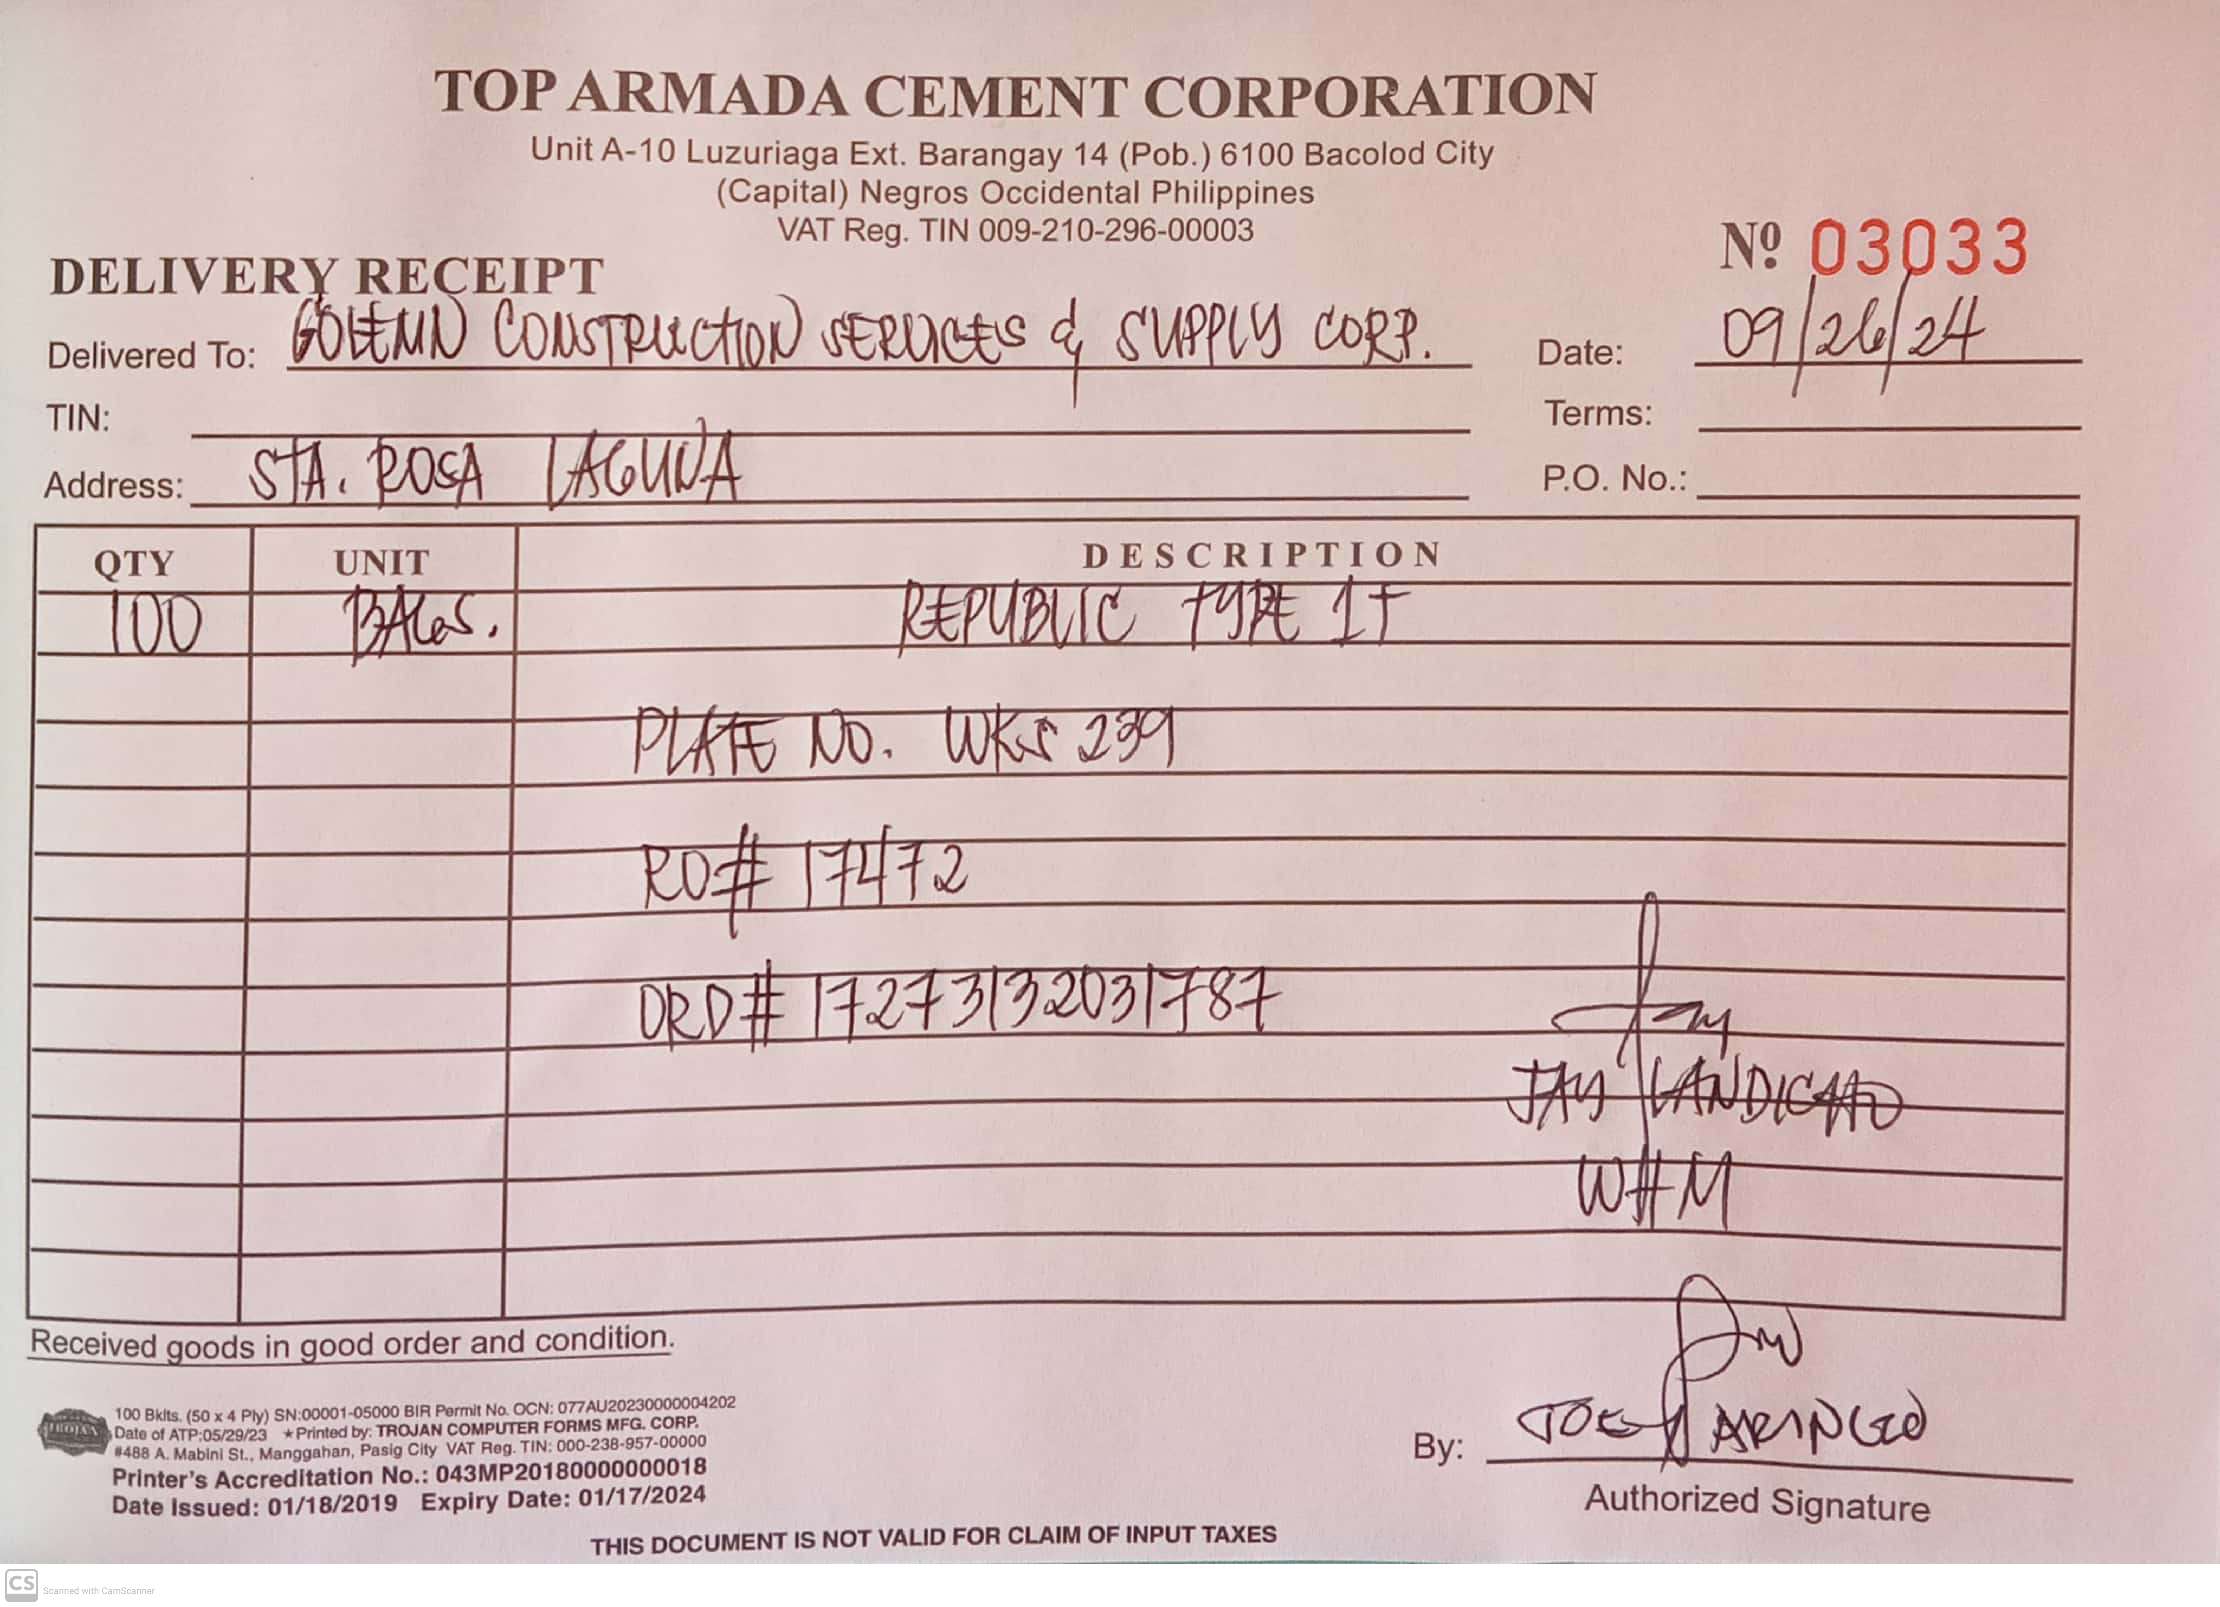 TOP ARMADA CEMENT CORPORATION
Unit A-10 Luzuriaga Ext. Barangay 14 (Pob.) 6100 Bacolod City
(Capital) Negros Occidental Philippines
VAT Reg. TIN 009-210-296-00003
Nº 03033
DELIVERY RECEIPT
Delivered To: GOLEMN CONSTRUCTION SERVICES & SUPPLY CORP. Date: 09/26/24
TIN: Terms:
Address: STA. ROSA LAGUNA P.O. No.:
QTY UNIT DESCRIPTION
100 BAGS. REPUBLIC TYPE 1T
PLATE NO. WKS 239
RO# 17472
ORD# 17273132031787
Jay
JAY LANDICHO
WHM
Received goods in good order and condition.
100 Bklts. (50 x 4 Ply) SN:00001-05000 BIR Permit No. OCN: 077AU20230000004202
Date of ATP:05/29/23 ★Printed by: TROJAN COMPUTER FORMS MFG. CORP.
#488 A. Mabini St., Manggahan, Pasig City VAT Reg. TIN: 000-238-957-00000
Printer's Accreditation No.: 043MP20180000000018
Date Issued: 01/18/2019 Expiry Date: 01/17/2024
TROJAN
By: JOEY ARINGO
Authorized Signature
THIS DOCUMENT IS NOT VALID FOR CLAIM OF INPUT TAXES
CS Scanned with CamScanner